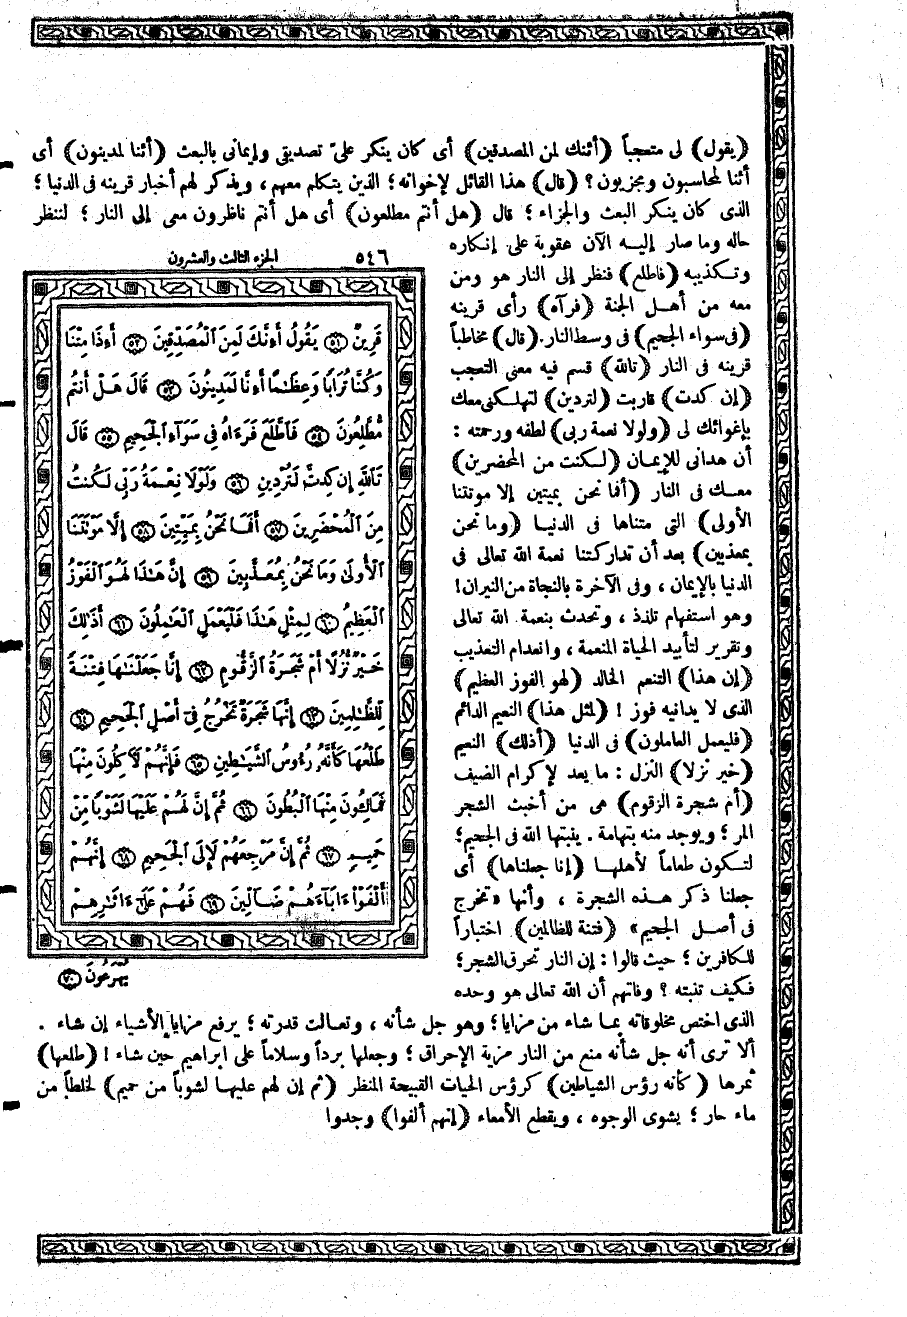 (يقول) لى متعجباً (أئنك لمن المصدقين) أى كان ينكر علىّ تصديقى وإيمانى بالبعث (أئنا لمدينون) أى
أئنا لمحاسبون ومجزيون؟ (قال) هذا القائل لإخوانه؛ الذين يتكلم معهم، ويذكر لهم أخبار قرينه فى الدنيا؛
الذى كان ينكر البعث والجزاء؛ قال (هل أنتم مطلعون) أى هل أنتم ناظرون معى إلى النار؛ لننظر
حاله وما صار إليه الآن عقوبة على إنكاره
وتكذيبه (فاطلع) فنظر إلى النار هو ومن
معه من أهل الجنة (فرآه) رأى قرينه
(فى سواء الجحيم) فى وسط النار. (قال) مخاطباً
قرينه فى النار (تالله) قسم فيه معنى التعجب
(إن كدت) قاربت (لتردين) لتهلكنى معك
بإغوائك لى (ولولا نعمة ربى) لطفه ورحمته:
أن هدانى للإيمان (لكنت من المحضرين)
معك فى النار (أفما نحن بميتين إلا موتتنا
الأولى) التى متناها فى الدنيا (وما نحن
بمعذبين) بعد أن تداركتنا نعمة الله تعالى فى
الدنيا بالإيمان، وفى الآخرة بالنجاة من النيران!
وهو استفهام تلذذ، وتحدث بنعمة الله تعالى
وتقرير لتأييد الحياة المنعمة، وانعدام التعذيب
(إن هذا) التنعم الخالد (لهو الفوز العظيم)
الذى لا يدانيه فوز! (لمثل هذا) النعيم الدائم
(فليعمل العاملون) فى الدنيا (أذلك) النعيم
(خير نزلا) النزل: ما يعد لإكرام الضيف
(أم شجرة الزقوم) هى من أخبث الشجر
المر؛ ويوجد منه بتهامة. ينبتها الله فى الجحيم؛
لتكون طعاماً لأهلها (إنا جعلناها) أى
جعلنا ذكر هذه الشجرة، وأنها «تخرج
فى أصل الجحيم» (فتنة للظالمين) اختباراً
للكافرين؛ حيث قالوا: إن النار تحرق الشجر؛
فكيف تنبته؟ وفاتهم أن الله تعالى هو وحده
الجزء الثالث والعشرون ٥٤٦
قَرِينٌ ٥١ يَقُولُ أَءِنَّكَ لَمِنَ ٱلْمُصَدِّقِينَ ٥٢ أَءِذَا مِتْنَا
وَكُنَّا تُرَابًا وَعِظَـٰمًا أَءِنَّا لَمَدِينُونَ ٥٣ قَالَ هَلْ أَنتُم
مُّطَّلِعُونَ ٥٤ فَٱطَّلَعَ فَرَءَاهُ فِى سَوَآءِ ٱلْجَحِيمِ ٥٥ قَالَ
تَٱللَّهِ إِن كِدتَّ لَتُرْدِينِ ٥٦ وَلَوْلَا نِعْمَةُ رَبِّى لَكُنتُ
مِنَ ٱلْمُحْضَرِينَ ٥٧ أَفَمَا نَحْنُ بِمَيِّتِينَ ٥٨ إِلَّا مَوْتَتَنَا
ٱلْأُولَىٰ وَمَا نَحْنُ بِمُعَذَّبِينَ ٥٩ إِنَّ هَـٰذَا لَهُوَ ٱلْفَوْزُ
ٱلْعَظِيمُ ٦٠ لِمِثْلِ هَـٰذَا فَلْيَعْمَلِ ٱلْعَـٰمِلُونَ ٦١ أَذَٰلِكَ
خَيْرٌ نُّزُلًا أَمْ شَجَرَةُ ٱلزَّقُّومِ ٦٢ إِنَّا جَعَلْنَـٰهَا فِتْنَةً
لِّلظَّـٰلِمِينَ ٦٣ إِنَّهَا شَجَرَةٌ تَخْرُجُ فِىٓ أَصْلِ ٱلْجَحِيمِ ٦٤
طَلْعُهَا كَأَنَّهُۥ رُءُوسُ ٱلشَّيَـٰطِينِ ٦٥ فَإِنَّهُمْ لَـَٔاكِلُونَ مِنْهَا
فَمَالِـُٔونَ مِنْهَا ٱلْبُطُونَ ٦٦ ثُمَّ إِنَّ لَهُمْ عَلَيْهَا لَشَوْبًا مِّنْ
حَمِيمٍ ٦٧ ثُمَّ إِنَّ مَرْجِعَهُمْ لَإِلَى ٱلْجَحِيمِ ٦٨ إِنَّهُمْ
أَلْفَوْا۟ ءَابَآءَهُمْ ضَآلِّينَ ٦٩ فَهُمْ عَلَىٰٓ ءَاثَـٰرِهِمْ
يُهْرَعُونَ ٧٠
الذى اختص مخلوقاته بما شاء من مزايا؛ وهو جل شأنه، وتعالت قدرته؛ يرفع مزايا الأشياء إن شاء.
ألا ترى أنه جل شأنه منع من النار مزية الإحراق؛ وجعلها برداً وسلاماً على ابراهيم حين شاء! (طلعها)
ثمرها (كأنه رؤس الشياطين) كرؤس الحيات القبيحة المنظر (ثم إن لهم عليها لشوباً من حميم) لخلطاً من
ماء حار؛ يشوى الوجوه، ويقطع الأمعاء (إنهم ألفوا) وجدوا